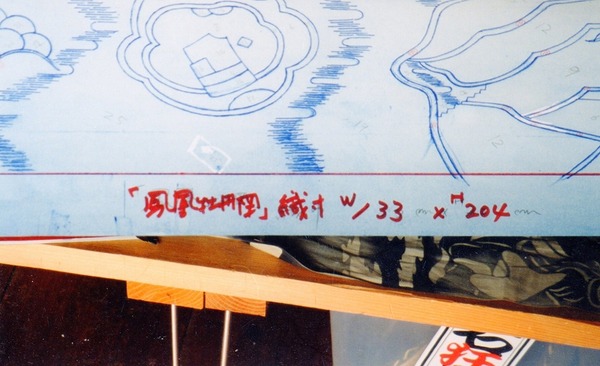 「鳳凰牡丹図」織寸 W133㎝×H204㎝
狂